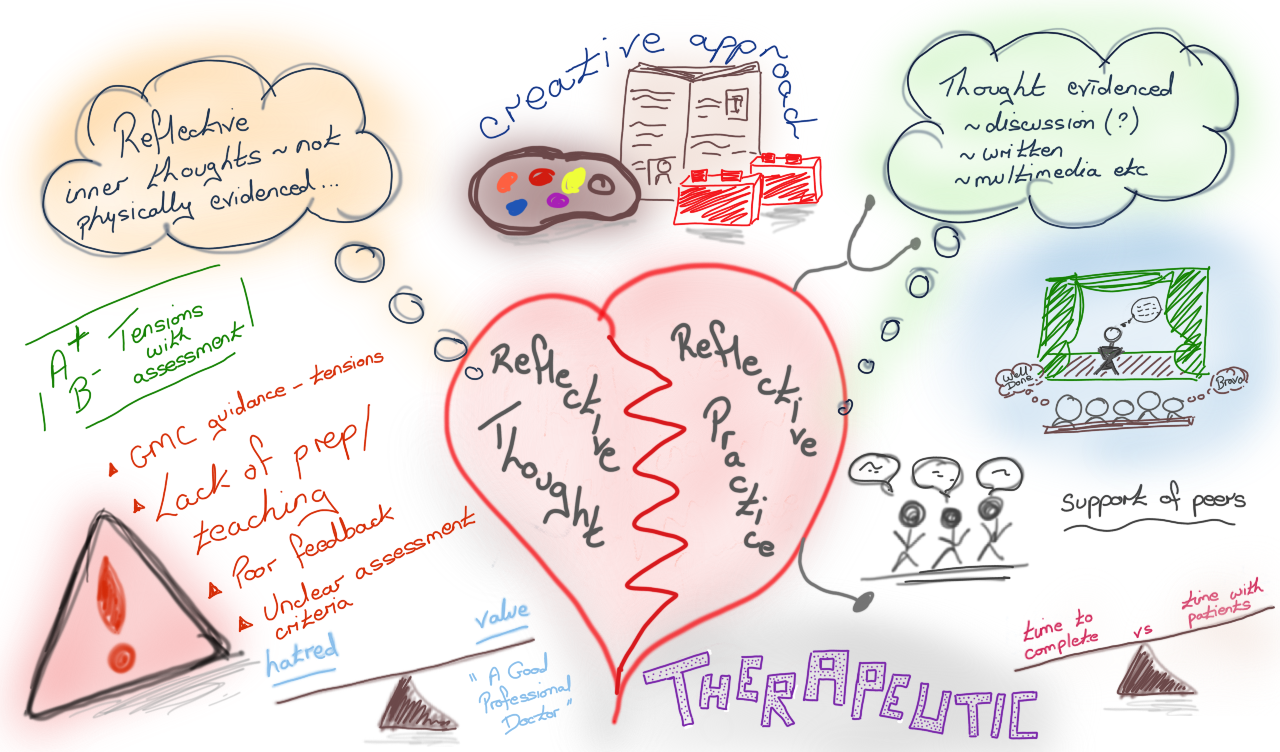 creative approach
Reflective
inner thoughts ~ not
physically evidenced...
Thought evidenced
~ discussion (?)
~ written
~ multimedia etc
A+
B-
Tensions
with
assessment
GMC guidance - tensions
Lack of prep/
teaching
Poor feedback
Unclear assessment
criteria
Reflective
Thought
Reflective
Practice
Well
Done
Bravo
Support of peers
hatred
value
"A Good
Professional
Doctor"
THERAPEUTIC
time to
complete
vs
time with
patients